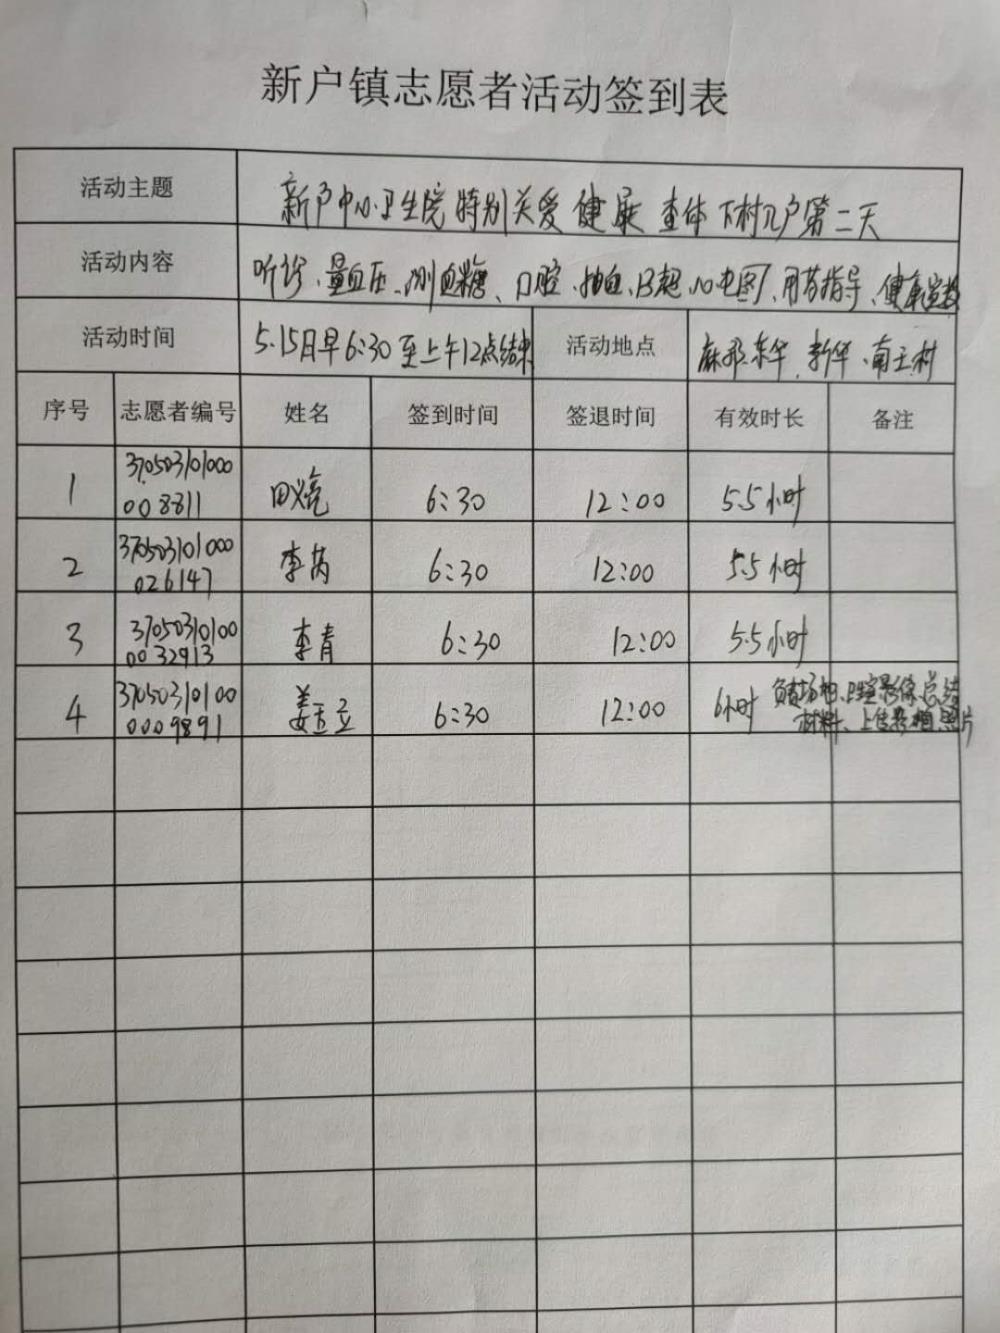 新户镇志愿者活动签到表
活动主题 新户中心卫生院特别关爱健康查体下村入户第二天
活动内容 听诊、量血压、测血糖、口腔、抽血、B超、心电图、用药指导、健康宣教
活动时间 5.15日早6:30至上午12点结束 活动地点 东华、新华、南王村
序号 志愿者编号 姓名 签到时间 签退时间 有效时长 备注
1 370503101000 田义亮 6:30 12:00 5.5小时
008811
2 370503101000 李芮 6:30 12:00 5.5小时
026147
3 37050310100 李青 6:30 12:00 5.5小时
0032913
4 37050310100 姜玉立 6:30 12:00 6小时 影像、总结
0009891 材料、上传 照片